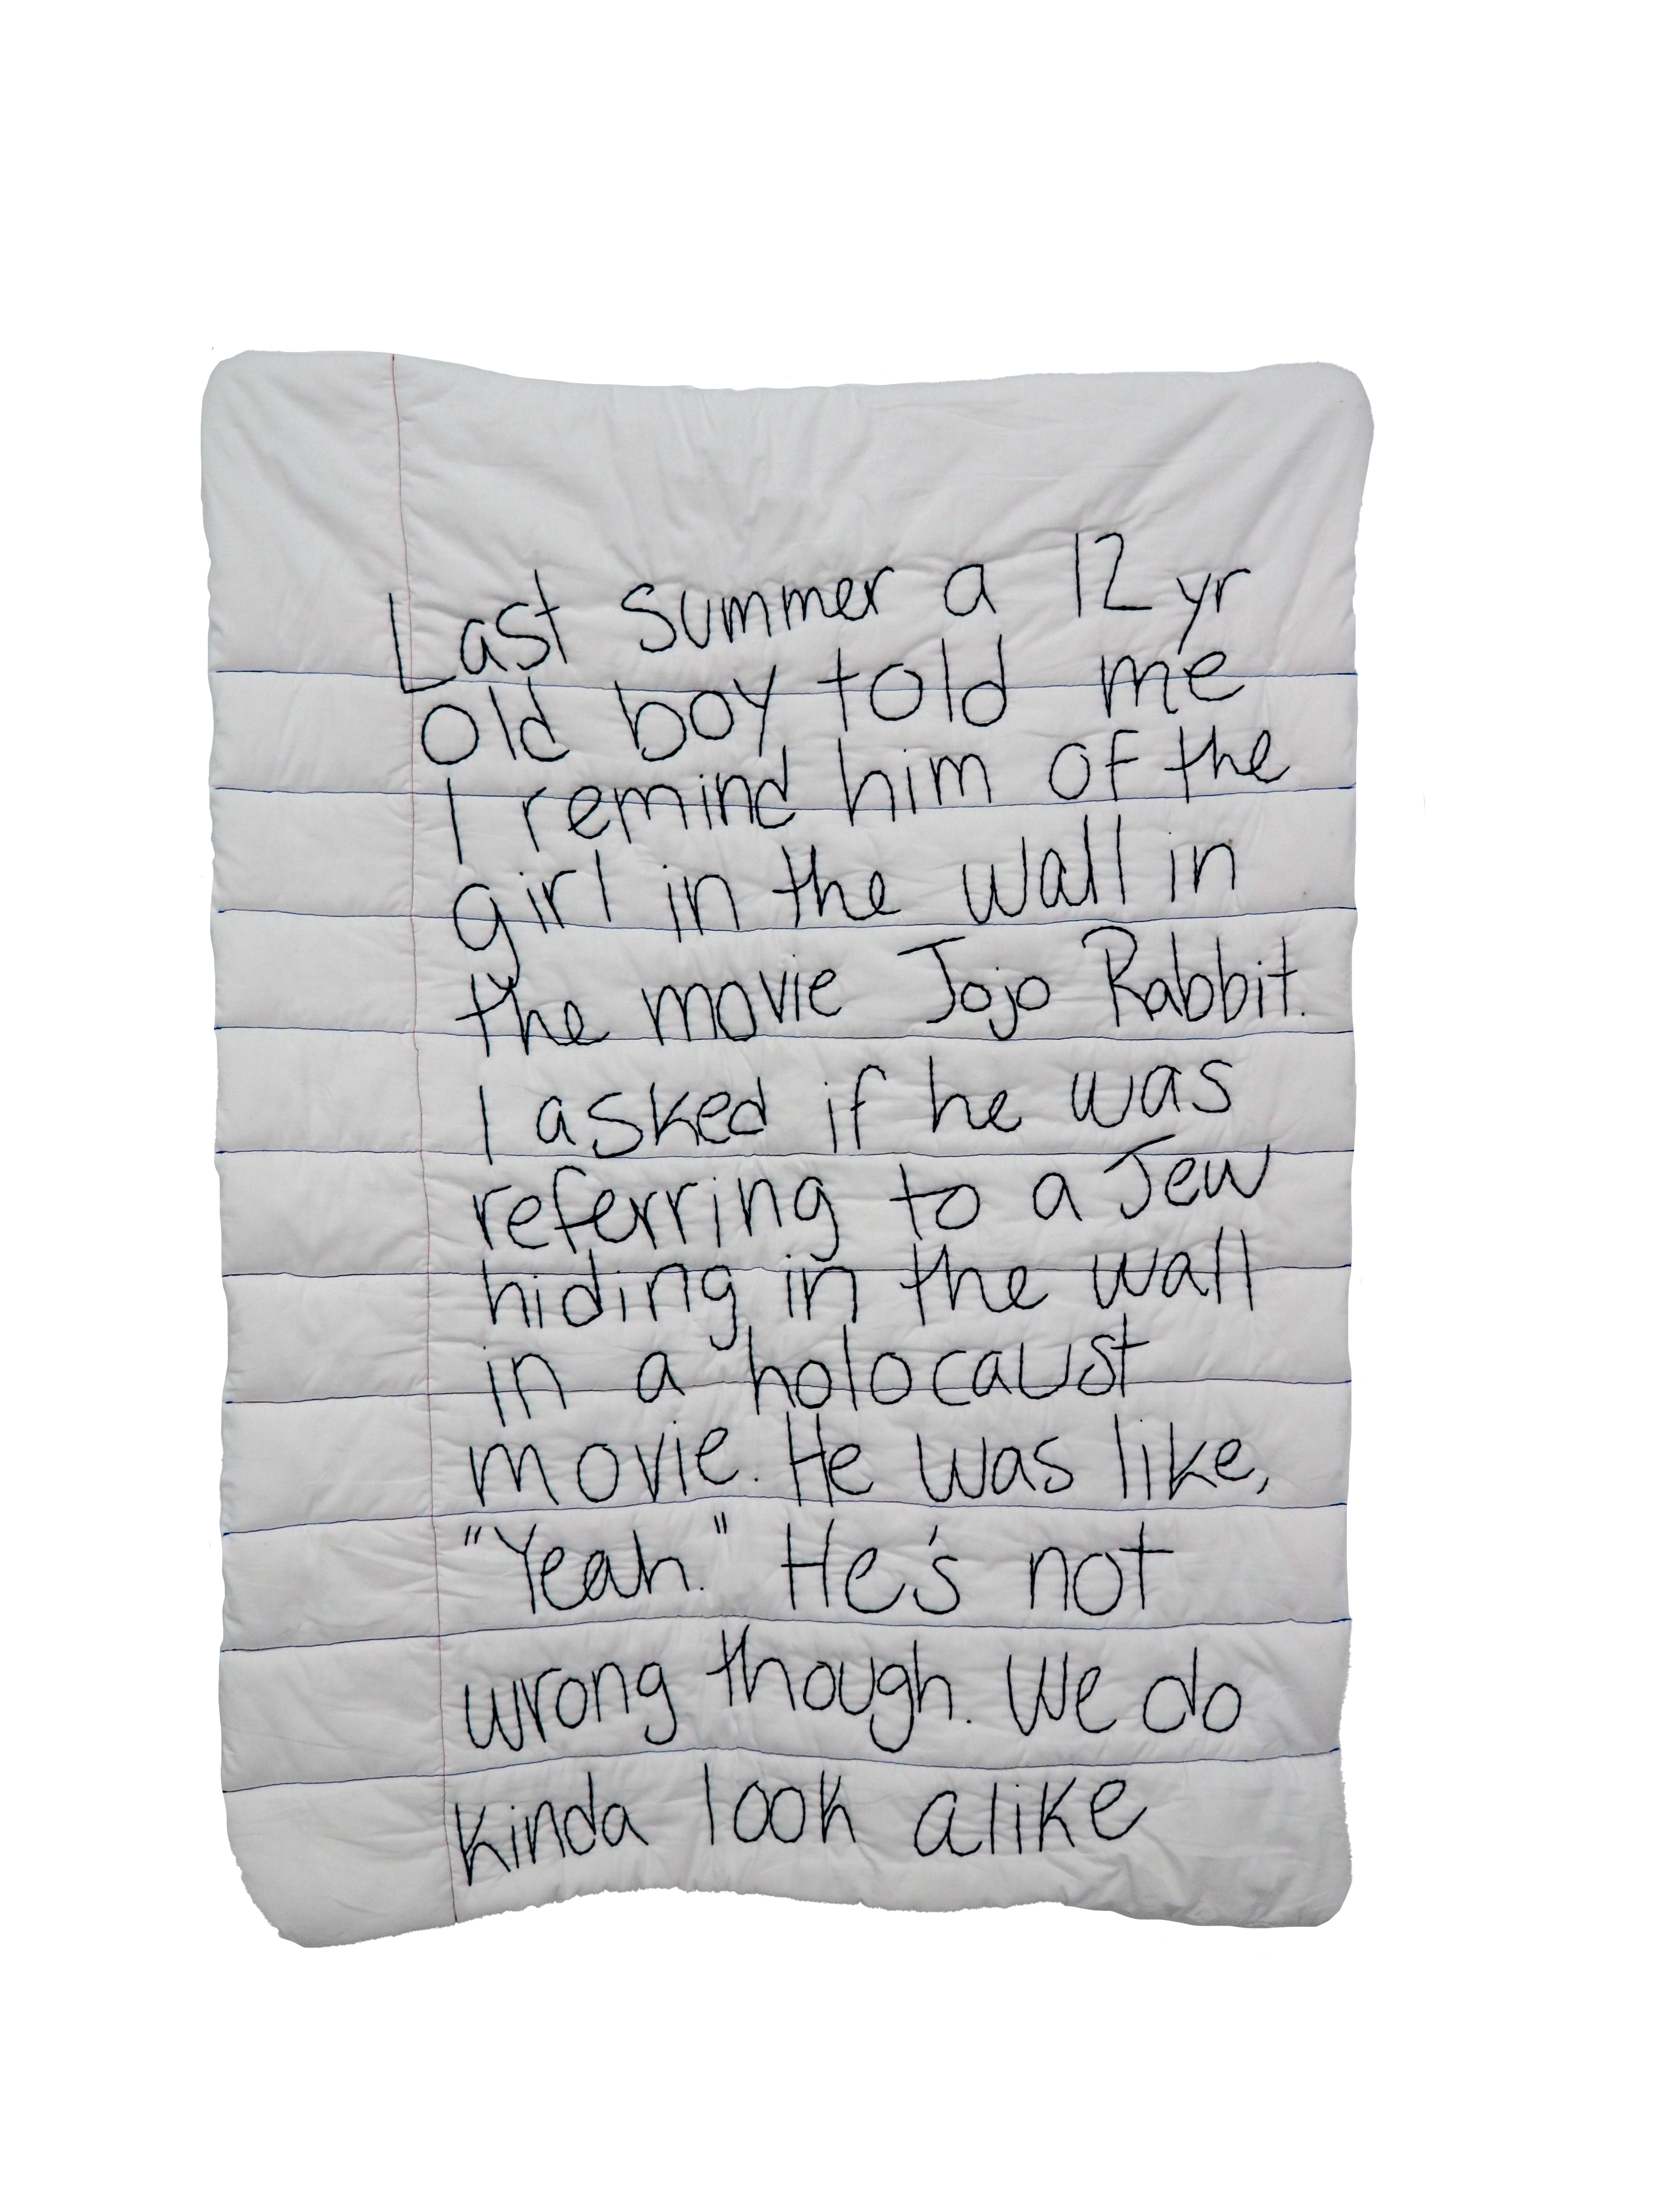 Last summer a 12 yr
old boy told me
I remind him of the
girl in the wall in
the movie Jojo Rabbit.
I asked if he was
referring to a Jew
hiding in the wall
in a holocaust
movie. He was like,
"Yeah." He's not
wrong though. We do
kinda look alike